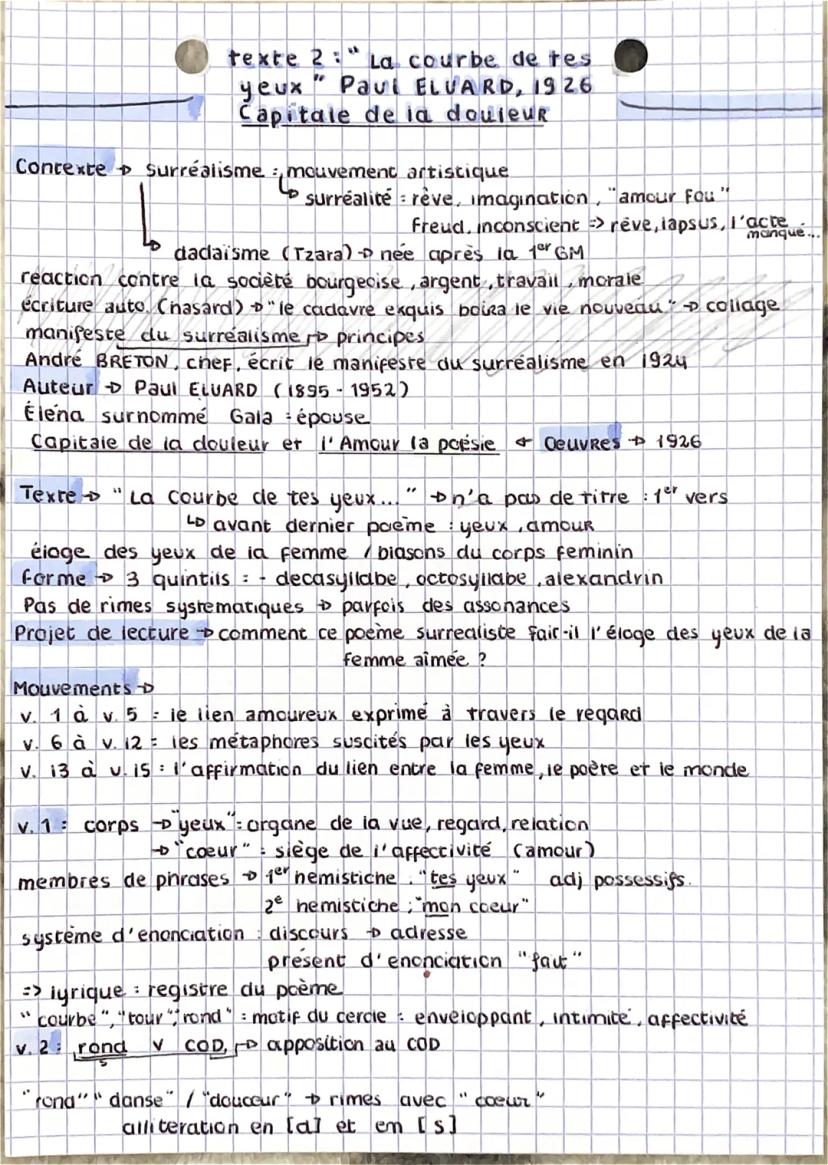 texte 2 : " La courbe de tes
yeux " Paul ELUARD, 1926
Capitale de la douleur
Contexte → surréalisme : mouvement artistique
↳ surréalité : rêve, imagination, "amour fou"
Freud, inconscient => rêve, lapsus, l'acte
manqué...
↳ dadaïsme (Tzara) → née après la 1er GM
réaction contre la société bourgeoise, argent, travail, morale
écriture auto. (hasard) → "le cadavre exquis boira le vie nouveau" → collage
manifeste du surréalisme → principes
André BRETON, chef, écrit le manifeste du surréalisme en 1924
Auteur → Paul ELUARD (1895 - 1952)
Éléna surnommé Gala : épouse
Capitale de la douleur et l'Amour la poésie ← Oeuvres → 1926
Texte → " La courbe de tes yeux... " → n'a pas de titre : 1er vers
↳ avant dernier poème : yeux, amour
éloge des yeux de la femme / blasons du corps feminin
Forme → 3 quintils : - decasyllabe, octosyllabe, alexandrin
Pas de rimes systematiques → parfois des assonances
Projet de lecture → comment ce poème surrealiste fait-il l'éloge des yeux de la
femme aimée ?
Mouvements →
v. 1 à v. 5 : le lien amoureux exprimé à travers le regard
v. 6 à v. 12 : les métaphores suscités par les yeux
v. 13 à v. 15 : l'affirmation du lien entre la femme, le poète et le monde
v. 1 : corps → "yeux" : organe de la vue, regard, relation
→ "coeur" : siège de l'affectivité (amour)
membres de phrases → 1er hemistiche : "tes yeux" adj possessifs.
2e hemistiche ; "mon coeur"
système d'enonciation : discours → adresse
présent d'enonciation "fait"
=> lyrique : registre du poème
"courbe", "tour", "rond" : motif du cercle : enveloppant, intimité, affectivité
v. 2 : rond v COD, → apposition au COD
s
"rond" "danse" / "douceur" → rimes avec "coeur"
alliteration en [d] et en [s]